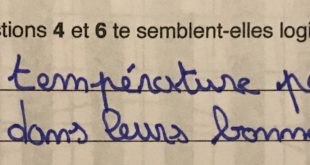 stions 4 et 6 te semblent-elles logi
température p
dans leurs bonn